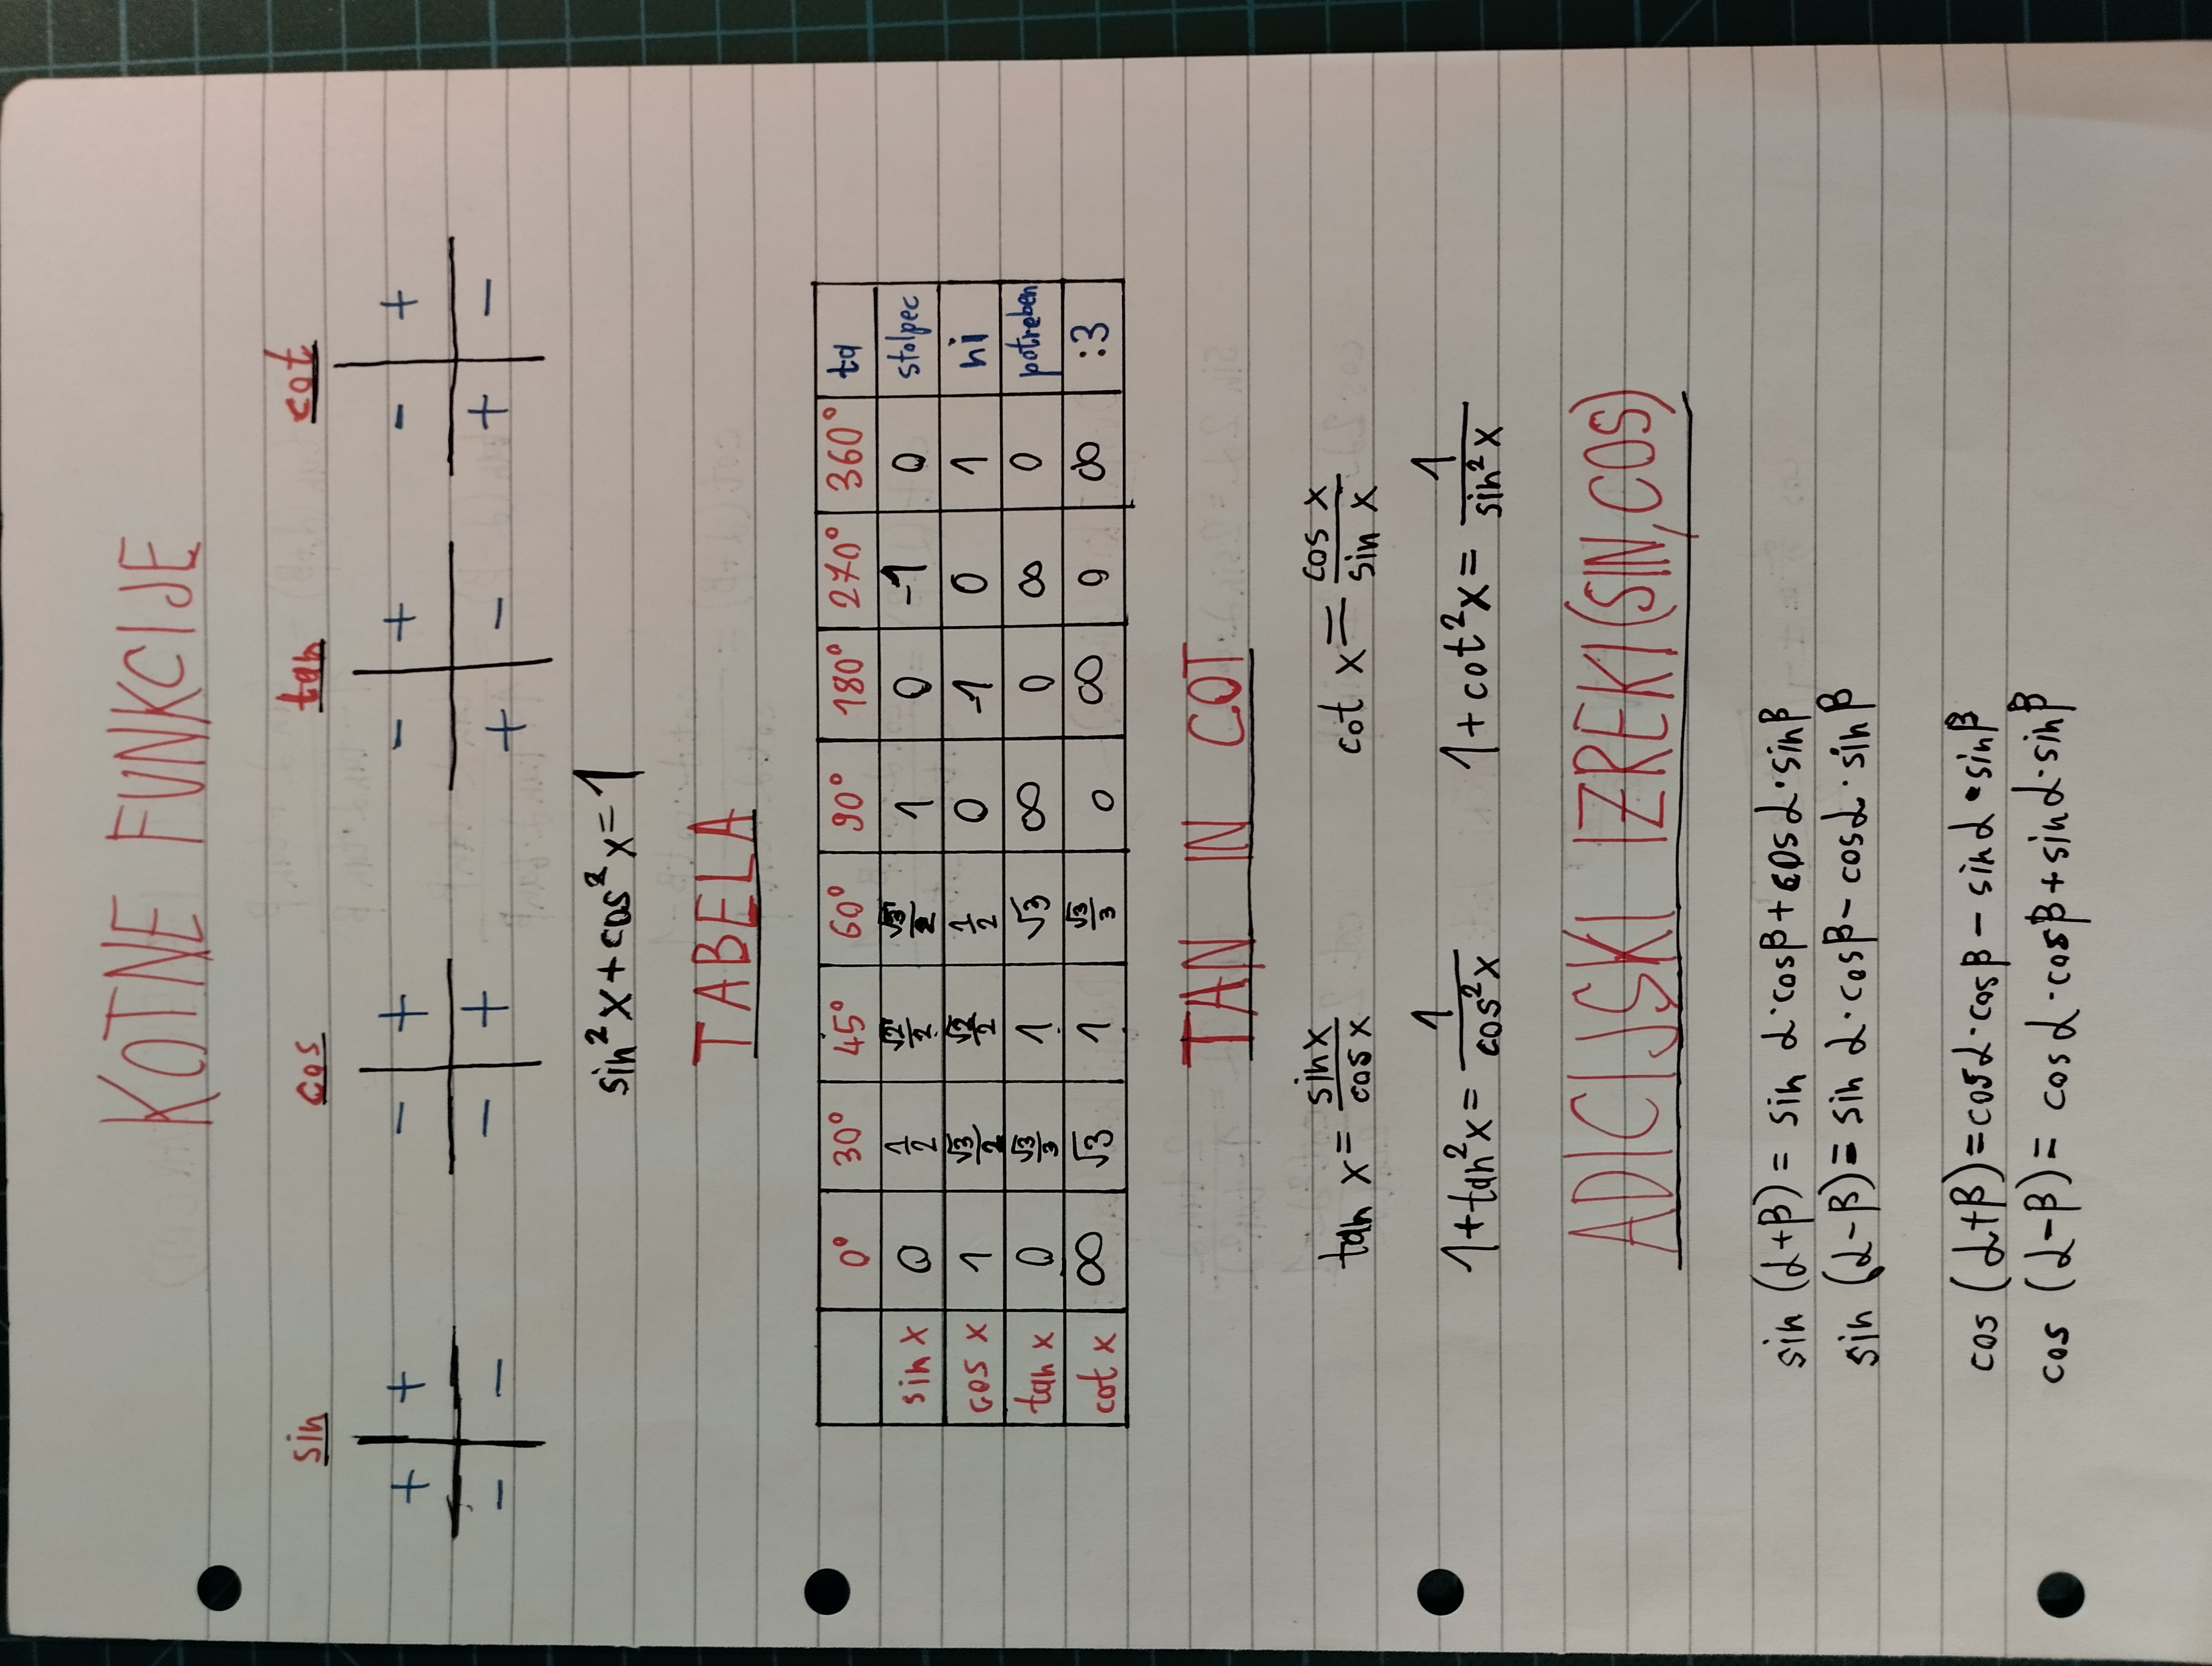 KOTNE FUNKCIJE
sin cos tan cot
+ + - + - + - +
- - - + + - + -
sin²x+cos²x=1
TABELA
0° 30° 45° 60° 90° 180° 270° 360° ta
sin x 0 1/2 √2/2 √3/2 1 0 -1 0 stolpec
cos x 1 √3/2 √2/2 1/2 0 -1 0 1 ni
tan x 0 √3/3 1 √3 ∞ 0 ∞ 0 potreben
cot x ∞ √3 1 √3/3 0 ∞ 0 ∞ :3
TAN IN COT
tan x = sin x/cos x cot x = cos x/sin x
1+tan²x = 1/cos²x 1+cot²x = 1/sin²x
ADICIJSKI IZREKI (SIN, COS)
sin (α+β) = sin α·cosβ + cosα·sinβ
sin (α-β) = sin α·cosβ - cosα·sinβ
cos (α+β) = cosα·cosβ - sinα·sinβ
cos (α-β) = cosα·cosβ + sinα·sinβ